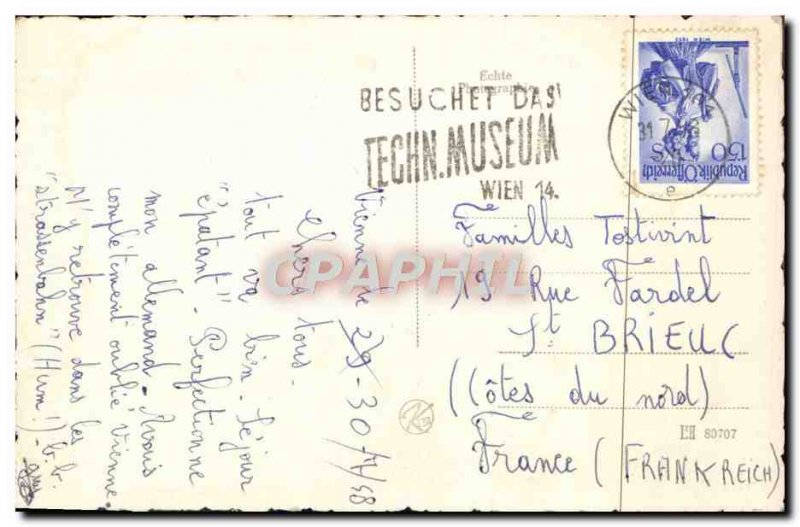 Vienne le 29-30/7/58
Chers tous.
tout va bien. Séjour
"épatant". Perfectionne
mon allemand. Avais
complètement oublié Vienne.
M'y retrouve dans les
"strassenbahn" (Hum!) -
Echte
Photographie
BESUCHET DAS
TECHN. MUSEUM
WIEN 14.
WIEN
31 7
e
WIEN
Republik Österreich
1S50
Familles Tostivint
19 Rue Fardel
St BRIEUC
(Côtes du nord)
France (FRANKREICH)
80707
CPAPHIL